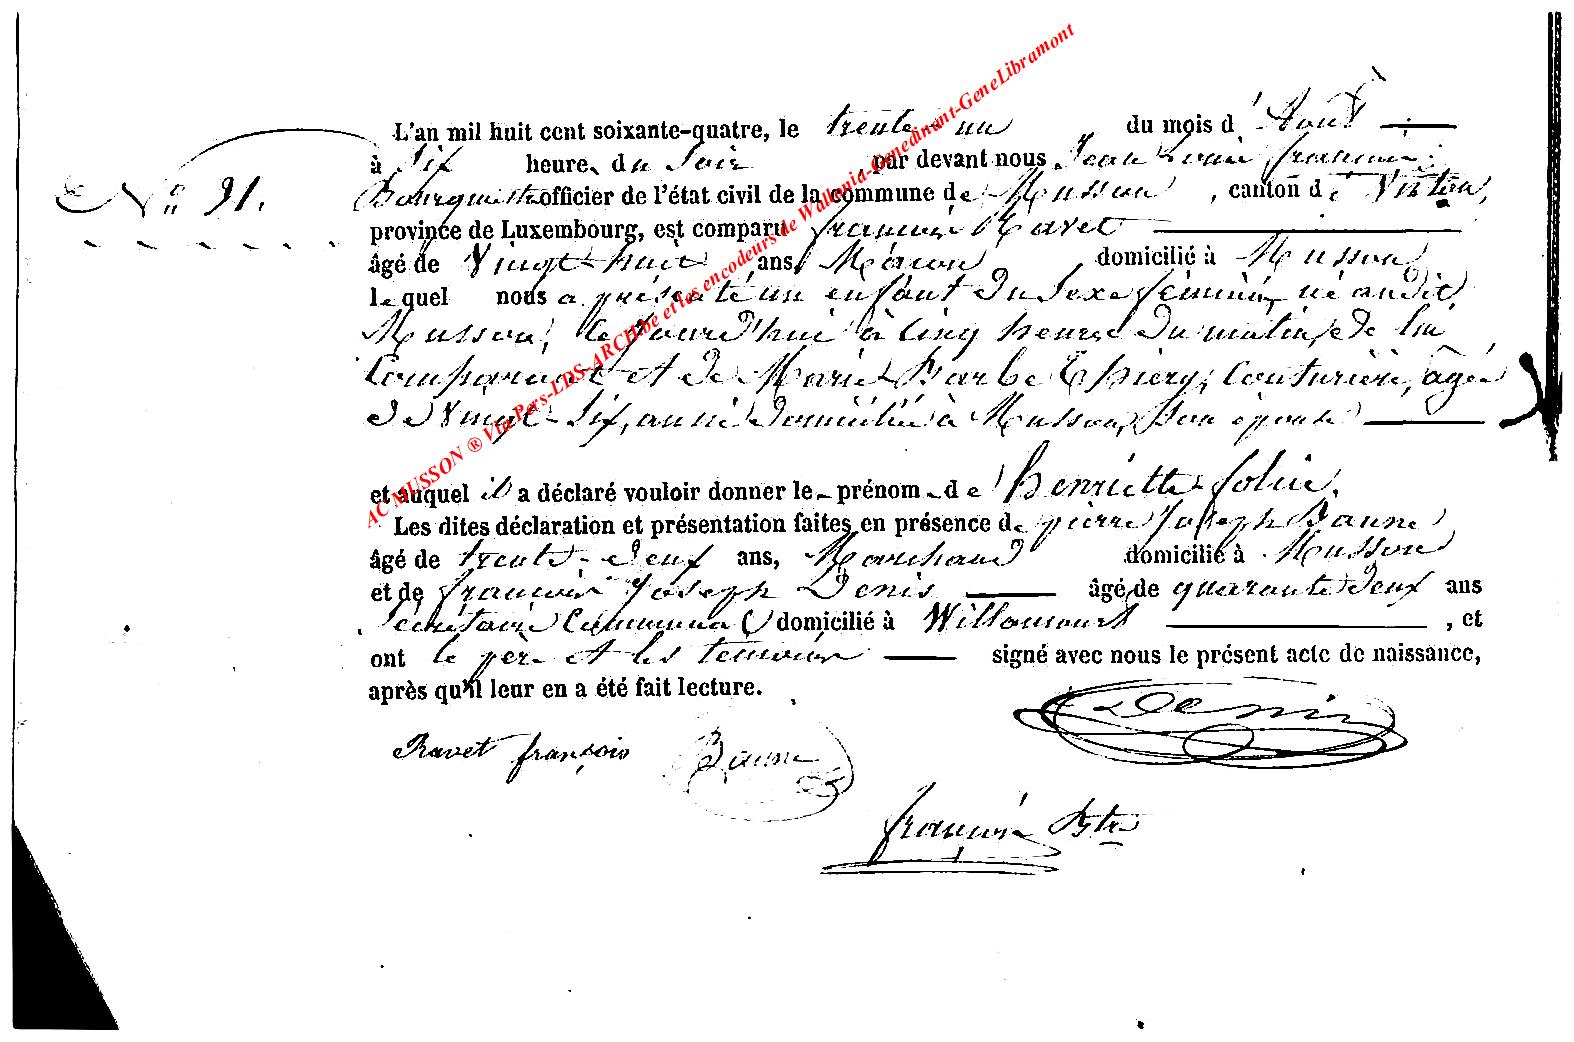 L'an mil huit cent soixante-quatre, le trente-un du mois d'Août
à Six heures du Soir par devant nous Jean Louis françois
N° 31. Bourguet officier de l'état civil de la commune de Musson, canton de Virton,
province de Luxembourg, est comparu françois Ravet
âgé de Vingt-huit ans, Maçon domicilié à Musson
lequel nous a présenté un enfant du Sexe féminin né audit
Musson, cejourd'hui à cinq heures du matin, de lui
Comparant et de Marie Barbe Thiery, Couturière, âgée
de Vingt-Six, aussi domiciliée à Musson, Son épouse
et auquel il a déclaré vouloir donner le prénom de Henriette
Les dites déclaration et présentation faites en présence de pierre Joseph Baune
âgé de trente-deux ans, Marchand domicilié à Musson
et de françois Joseph Denis âgé de quarante deux ans
Secrétaire Communal domicilié à Willancourt, et
ont le père et les témoins signé avec nous le présent acte de naissance,
après qu'il leur en a été fait lecture.
Denis
Ravet françois Baune
françois
AC MUSSON ® Via Pers-LDS-ARCHbe et les encodeurs de Wallonia-Genedinant-GeneLibramont